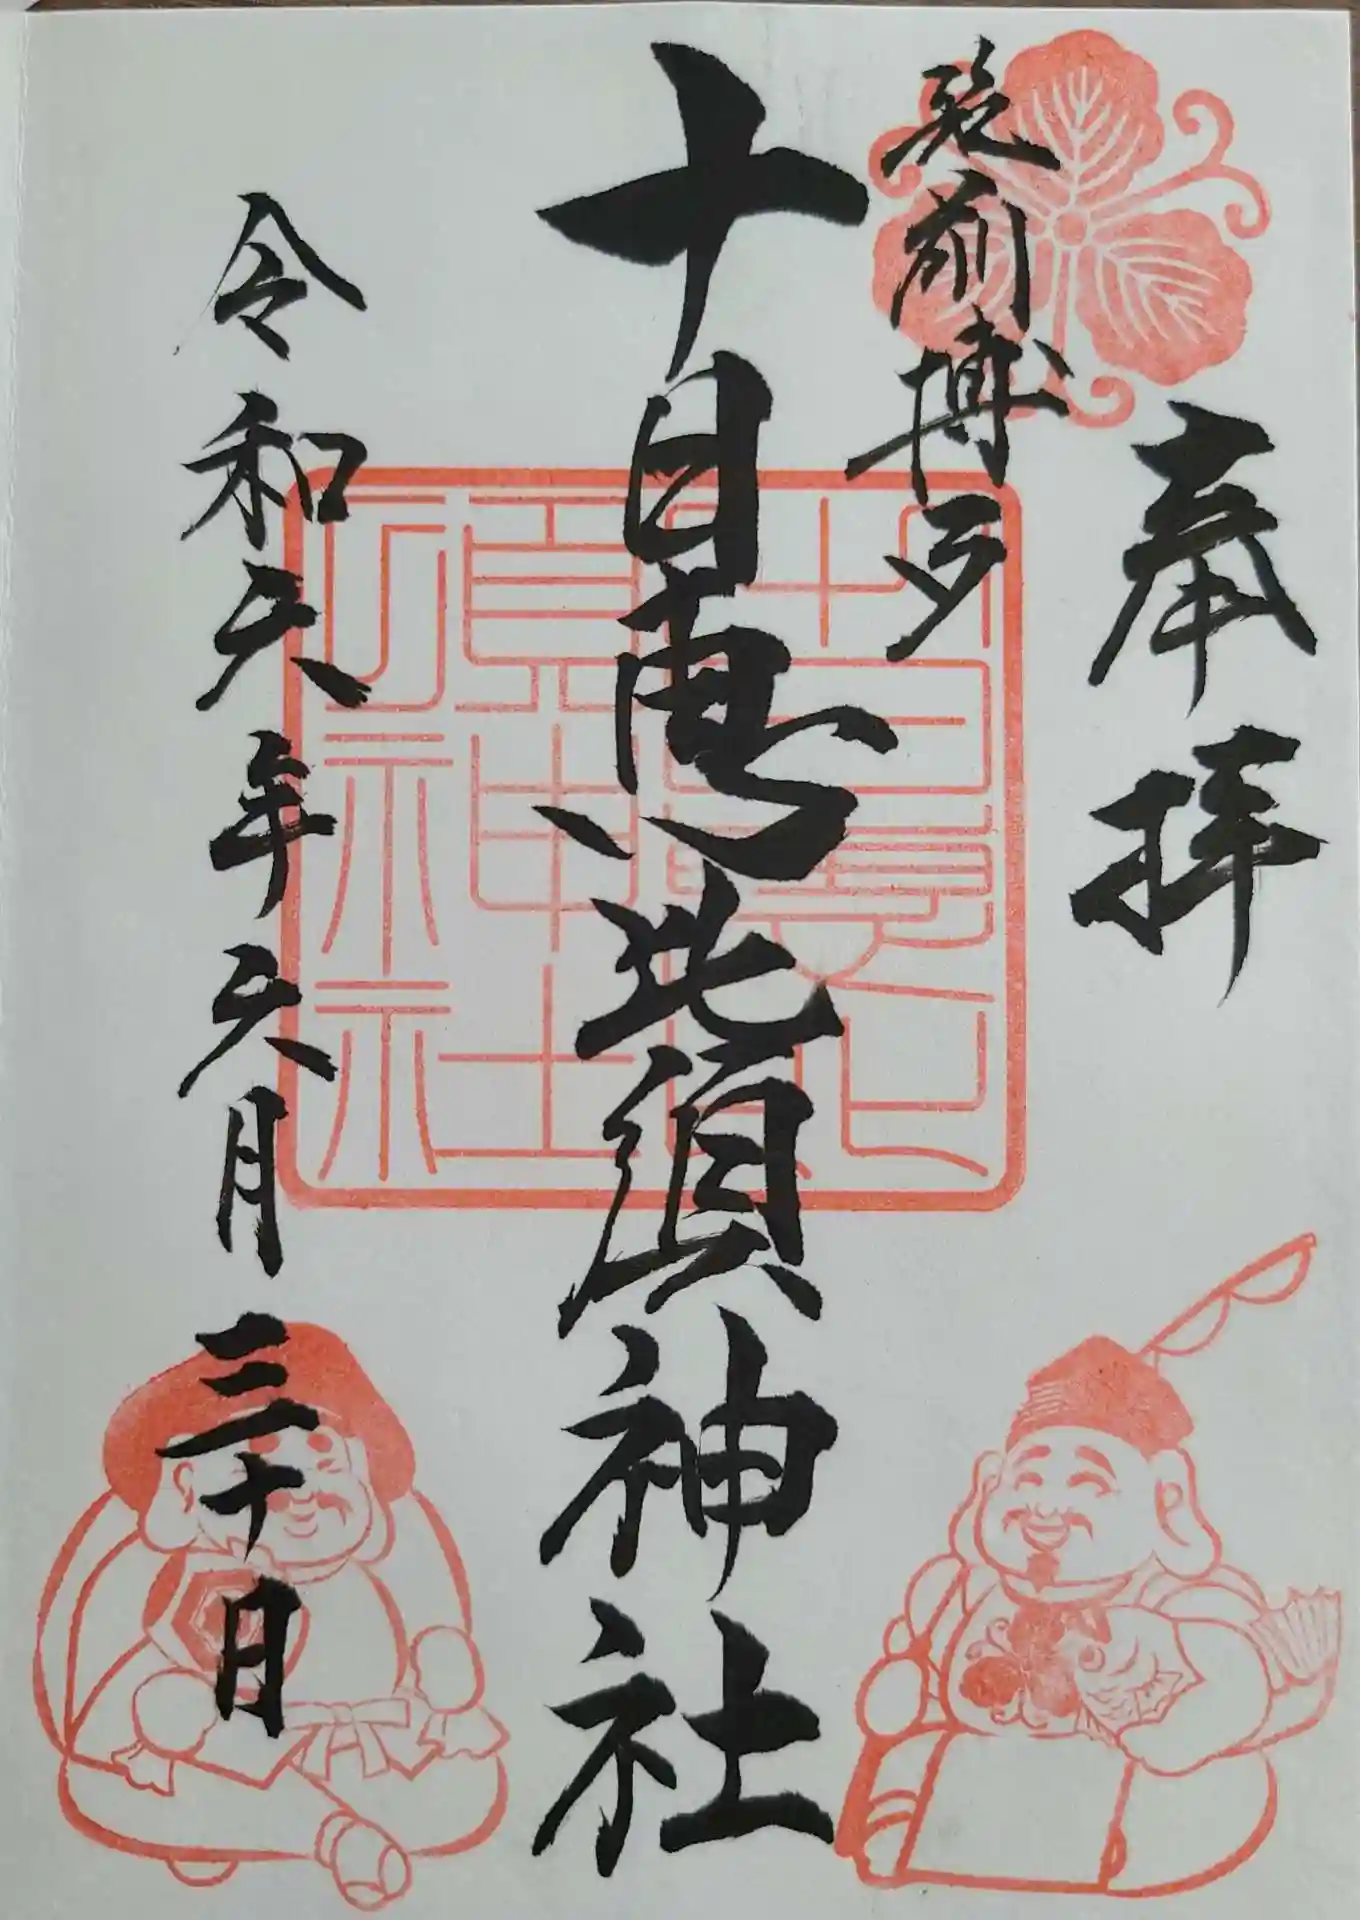 奉拝
筑前博多
十日恵比須神社
令和六年六月三十日
十日恵比須神社